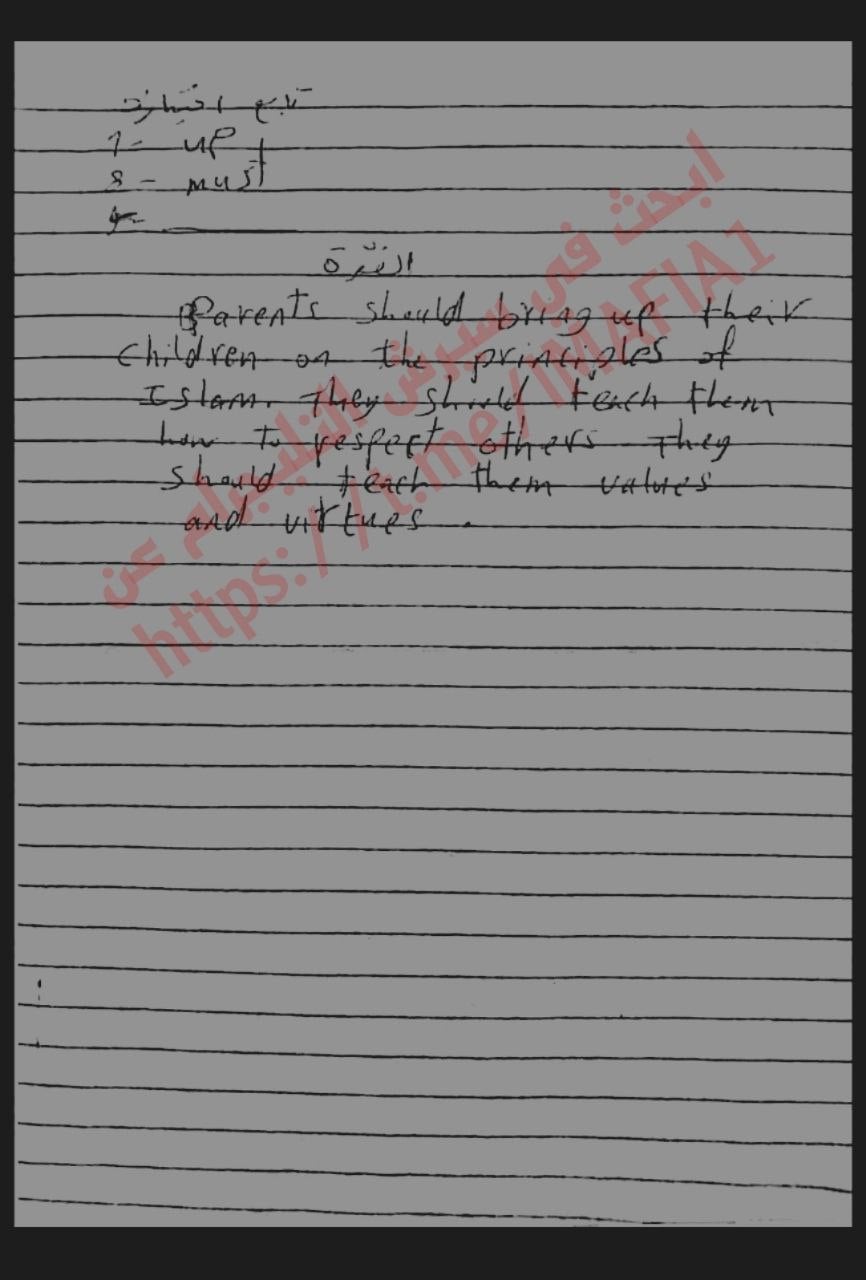 تابع اختيارات
7- up
8- must
9-
الفقرة
Parents should bring up their
children on the principles of
Islam. They should teach them
how to respect others They
should teach them values
and virtues.
ابحث في سيرش التليجرام عن
https://t.me/IMAFIA1